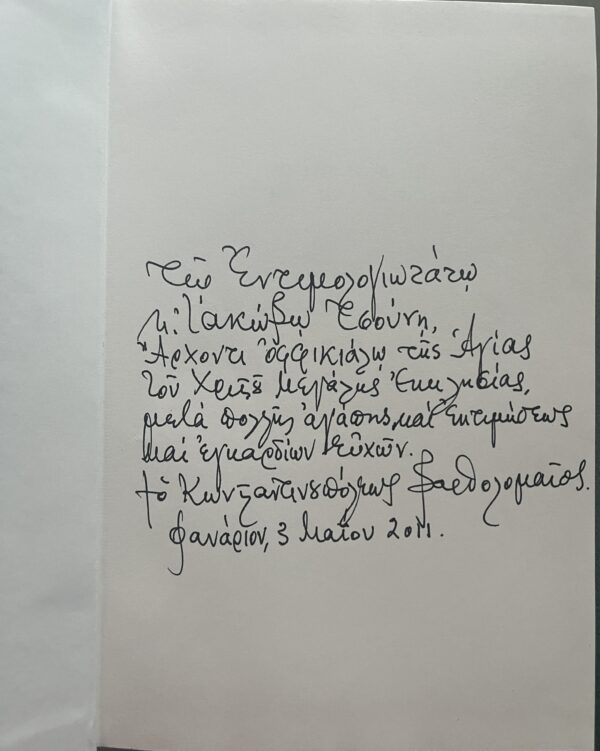 Τῷ Ἐντιμολογιωτάτῳ
κ. Ἰακώβῳ Τσούνῃ,
Ἄρχοντι Ὀφφικιάλῳ τῆς Ἁγίας
τοῦ Χριστοῦ Μεγάλης Ἐκκλησίας,
μετά πολλῆς ἀγάπης καί ἐκτιμήσεως
καί ἐγκαρδίων εὐχῶν.
† ὁ Κωνσταντινουπόλεως Βαρθολομαῖος.
Φανάριον, 3 Μαΐου 2011.